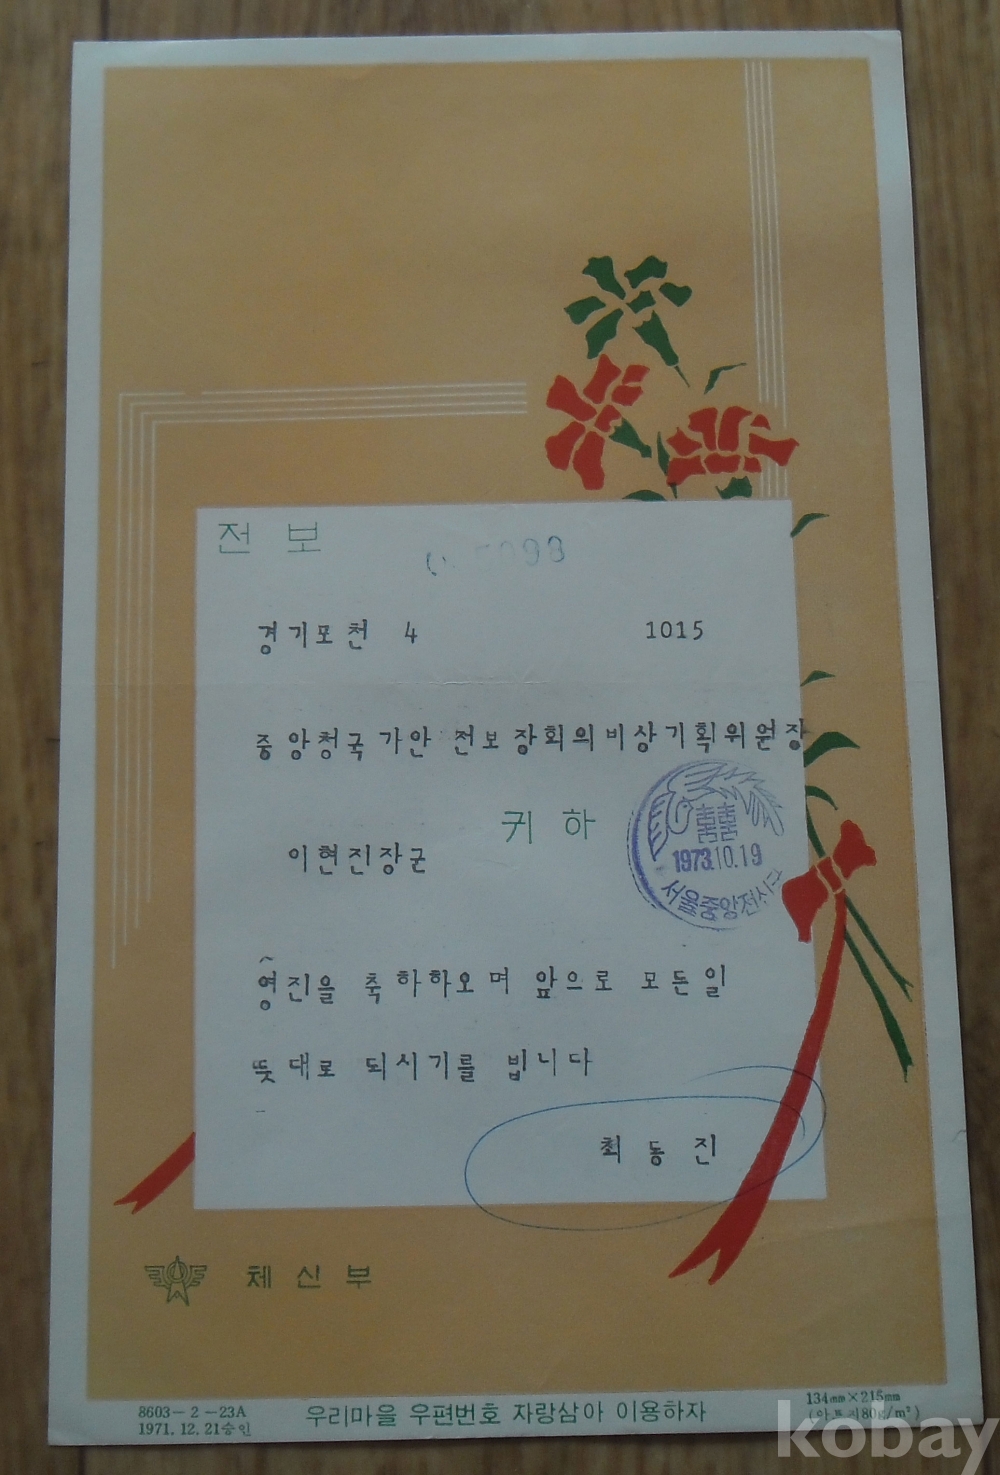 전 보
경기포천 4 1015
중앙청국가안전보장회의비상기획위원장
귀 하
이현진장군
1973.10.19
서울중앙전신국
영진을 축하하오며 앞으로 모든일
뜻대로 되시기를 빕니다
최 동 진
체 신 부
8603-2-23A
1971. 12. 21승인
우리마을 우편번호 자랑삼아 이용하자
134mm×215mm
(아트지80g/m²)
kobay